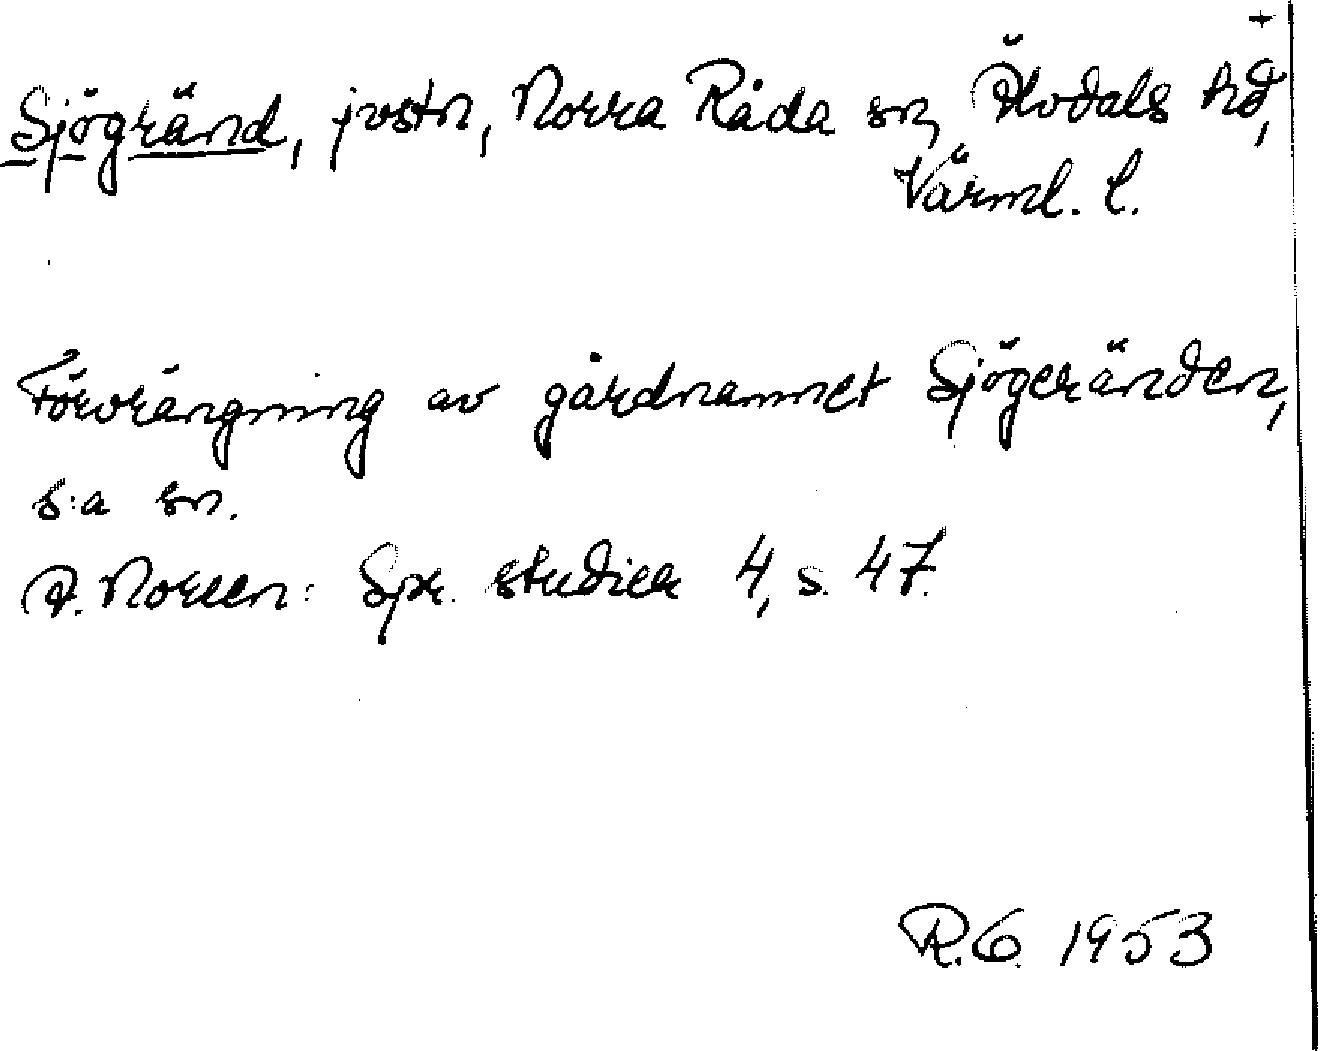 +
Sjögränd, jvstn, Norra Råda sn, Älvdals hd,
Värml. l.
Förvrängning av gårdnamnet Sjögeränden,
s:a sn.
A. Noreen: Spr. studier 4, s. 47.
R.G. 1953